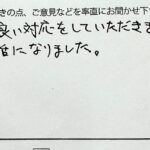 きの点、ご意見などを率直にお聞かせ下
良い対応をしていただきま
になりました。